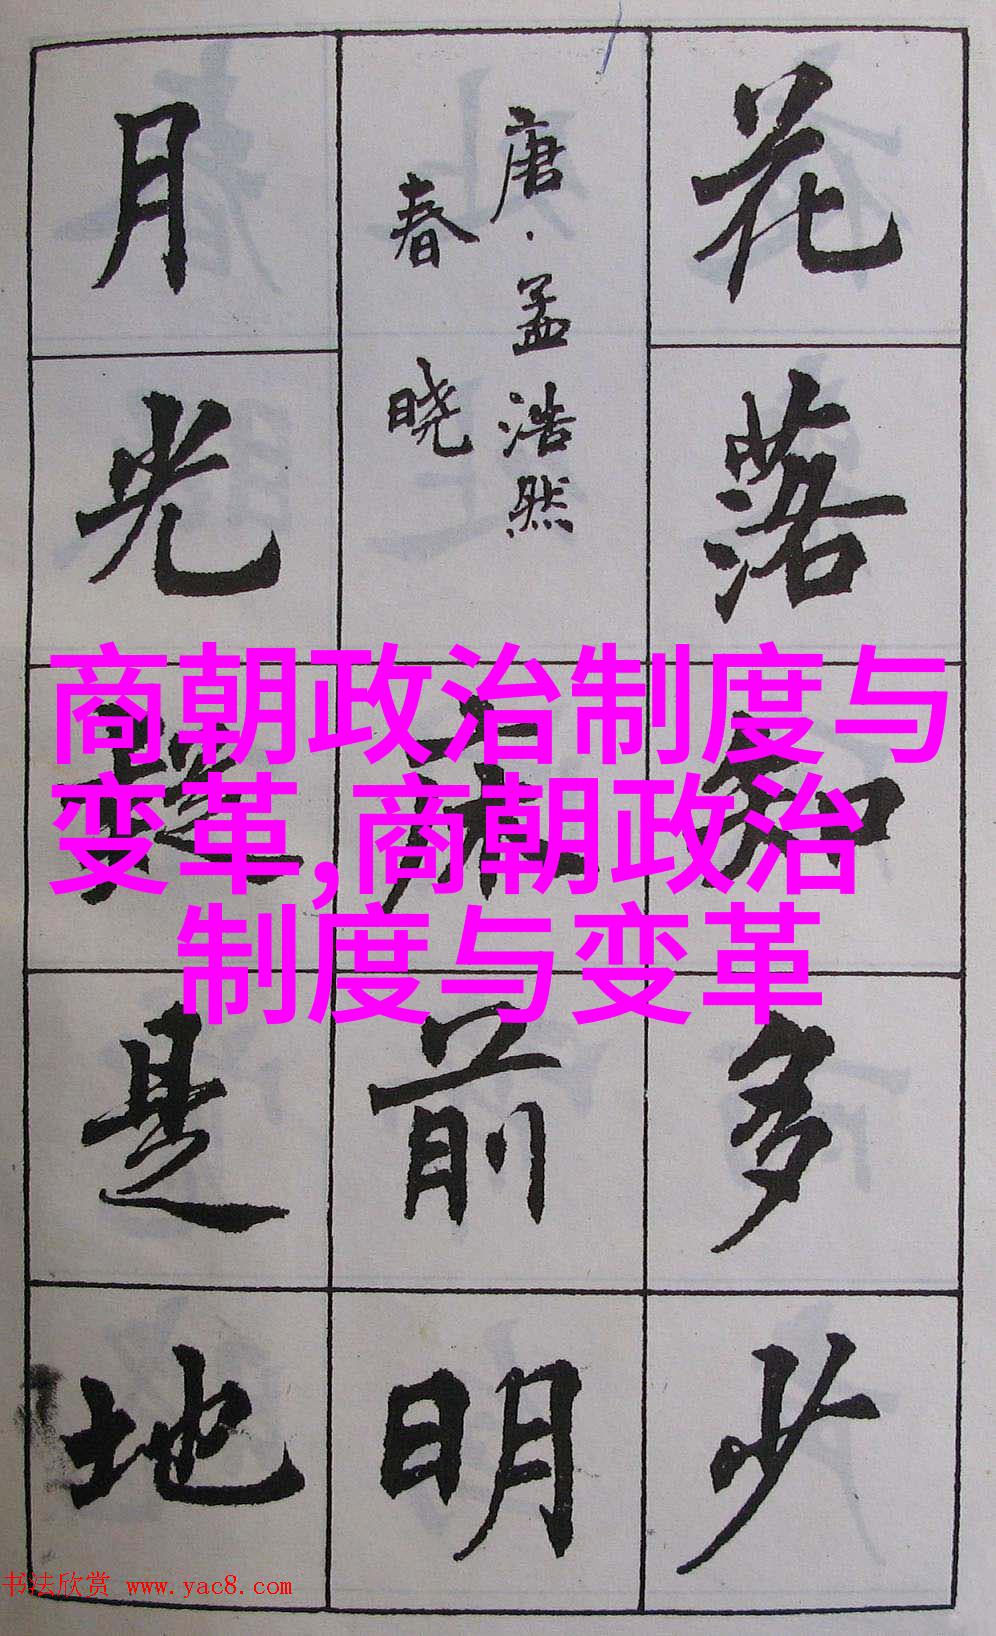 花落知多少
唐·孟浩然
春晓
床前明
月光疑是地
商朝政治制度与
变革,商朝政治
制度与变革
书法欣赏 www.yac8.com